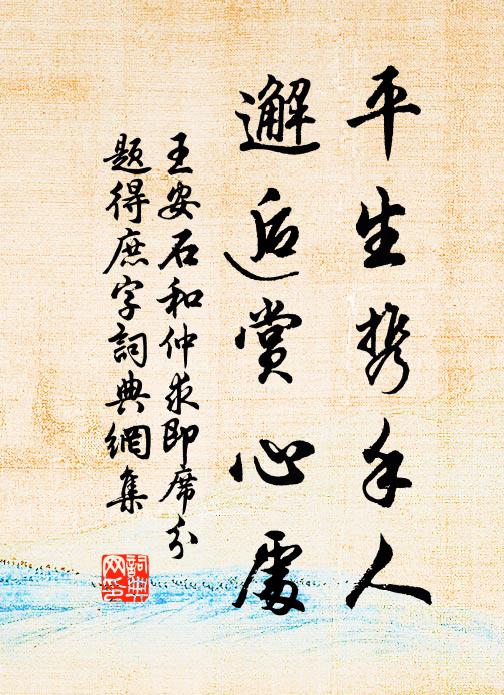 平生携手人
邂逅赏心處
王安石和仲求即席分
题得庶字詞典網集